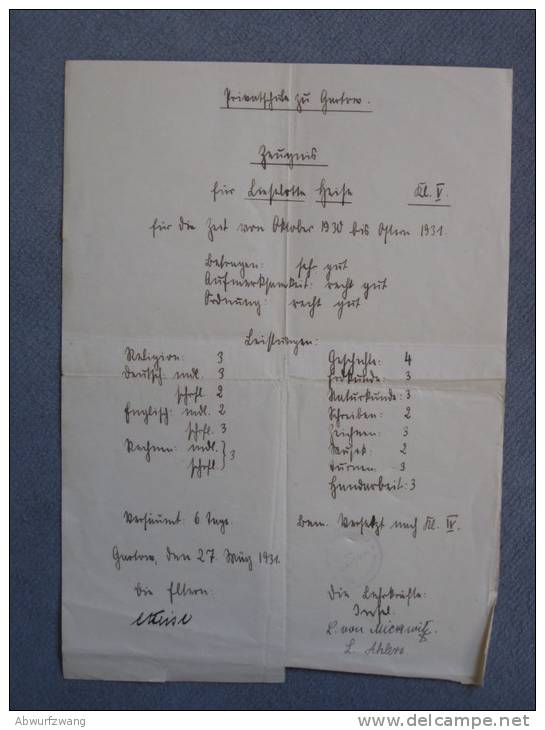 Privatschule zu Gartow.
Zeugnis
für Lieselotte Heise Kl. V.
für die Zeit von Oktober 1930 bis Ostern 1931.
Betragen: sehr gut
Aufmerksamkeit: recht gut
Ordnung: recht gut
Leistungen:
Religion: 3
Deutsch: mdl. 3
schrftl. 2
Englisch: mdl. 2
schrftl. 3
Rechnen: mdl. } 3
schrftl.
Geschichte: 4
Erdkunde: 3
Naturkunde: 3
Schreiben: 2
Zeichnen: 3
Musik: 2
Turnen: 3
Handarbeit: 3
Versäumt: 6 Tage.
Bem. Versetzt nach Kl. IV.
Gartow, den 27. März 1931.
Die Eltern:
Heise
Die Lehrkräfte:
L. von
L. Ahlers
Abwurfzwang
delcampe.net